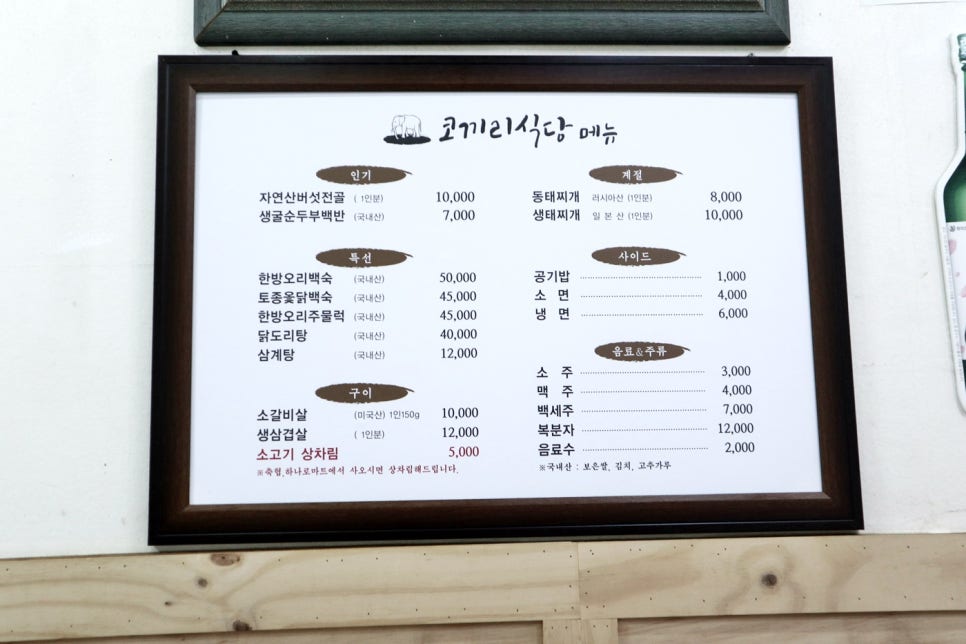 코끼리식당 메뉴
인기
자연산버섯전골 ( 1인분) 10,000
생굴순두부백반 (국내산) 7,000
특선
한방오리백숙 (국내산) 50,000
토종옻닭백숙 (국내산) 45,000
한방오리주물럭 (국내산) 45,000
닭도리탕 (국내산) 40,000
삼계탕 (국내산) 12,000
구이
소갈비살 (미국산) 1인150g 10,000
생삼겹살 ( 1인분) 12,000
소고기 상차림 5,000
※축협,하나로마트에서 사오시면 상차림해드립니다.
계절
동태찌개 러시아산 (1인분) 8,000
생태찌개 일 본 산 (1인분) 10,000
사이드
공기밥 1,000
소 면 4,000
냉 면 6,000
음료&주류
소 주 3,000
맥 주 4,000
백세주 7,000
복분자 12,000
음료수 2,000
※국내산 : 보은쌀, 김치, 고추가루